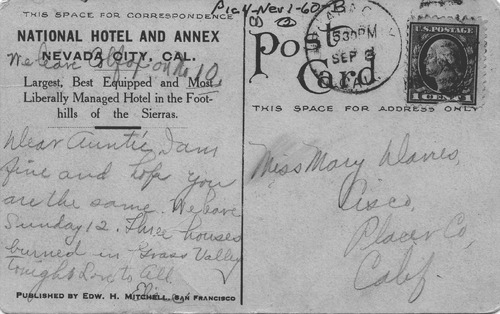 THIS SPACE FOR CORRESPONDENCE
NATIONAL HOTEL AND ANNEX
NEVADA CITY, CAL.
We leave on No. 10
Largest, Best Equipped and Most
Liberally Managed Hotel in the Foot-
hills of the Sierras.
Dear Auntie, I am
fine and hop you
are the same. We leave
Sunday 12. Three houses
burned in Grass Valley
tonight Love to All.
PUBLISHED BY EDW. H. MITCHELL, SAN FRANCISCO
Post
Card
530PM
SEP
CAL.
THIS SPACE FOR ADDRESS ONLY
Miss Mary
Cisco,
Placer Co,
Calif.